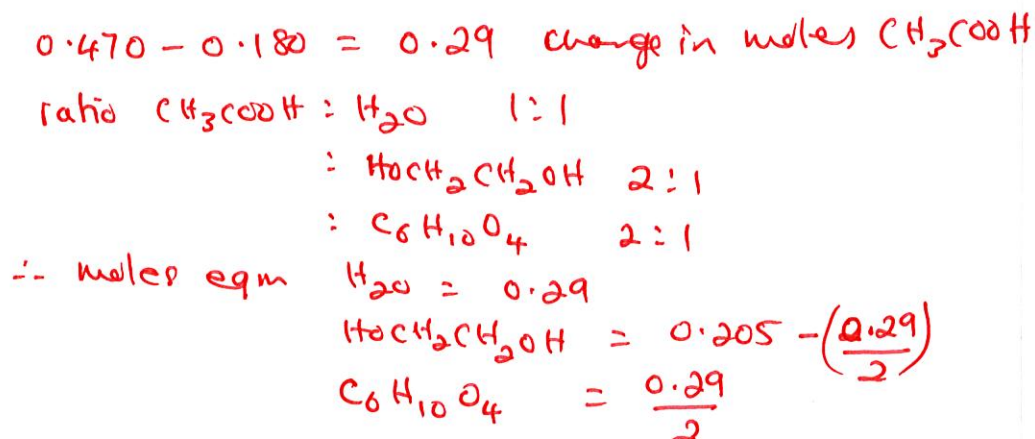 0.470 - 0.180 = 0.29 change in moles CH₃COOH
ratio CH₃COOH : H₂O 1:1
: HOCH₂CH₂OH 2:1
: C₆H₁₀O₄ 2:1
∴ moles eqm H₂O = 0.29
HOCH₂CH₂OH = 0.205 - (0.29/2)
C₆H₁₀O₄ = 0.29/2